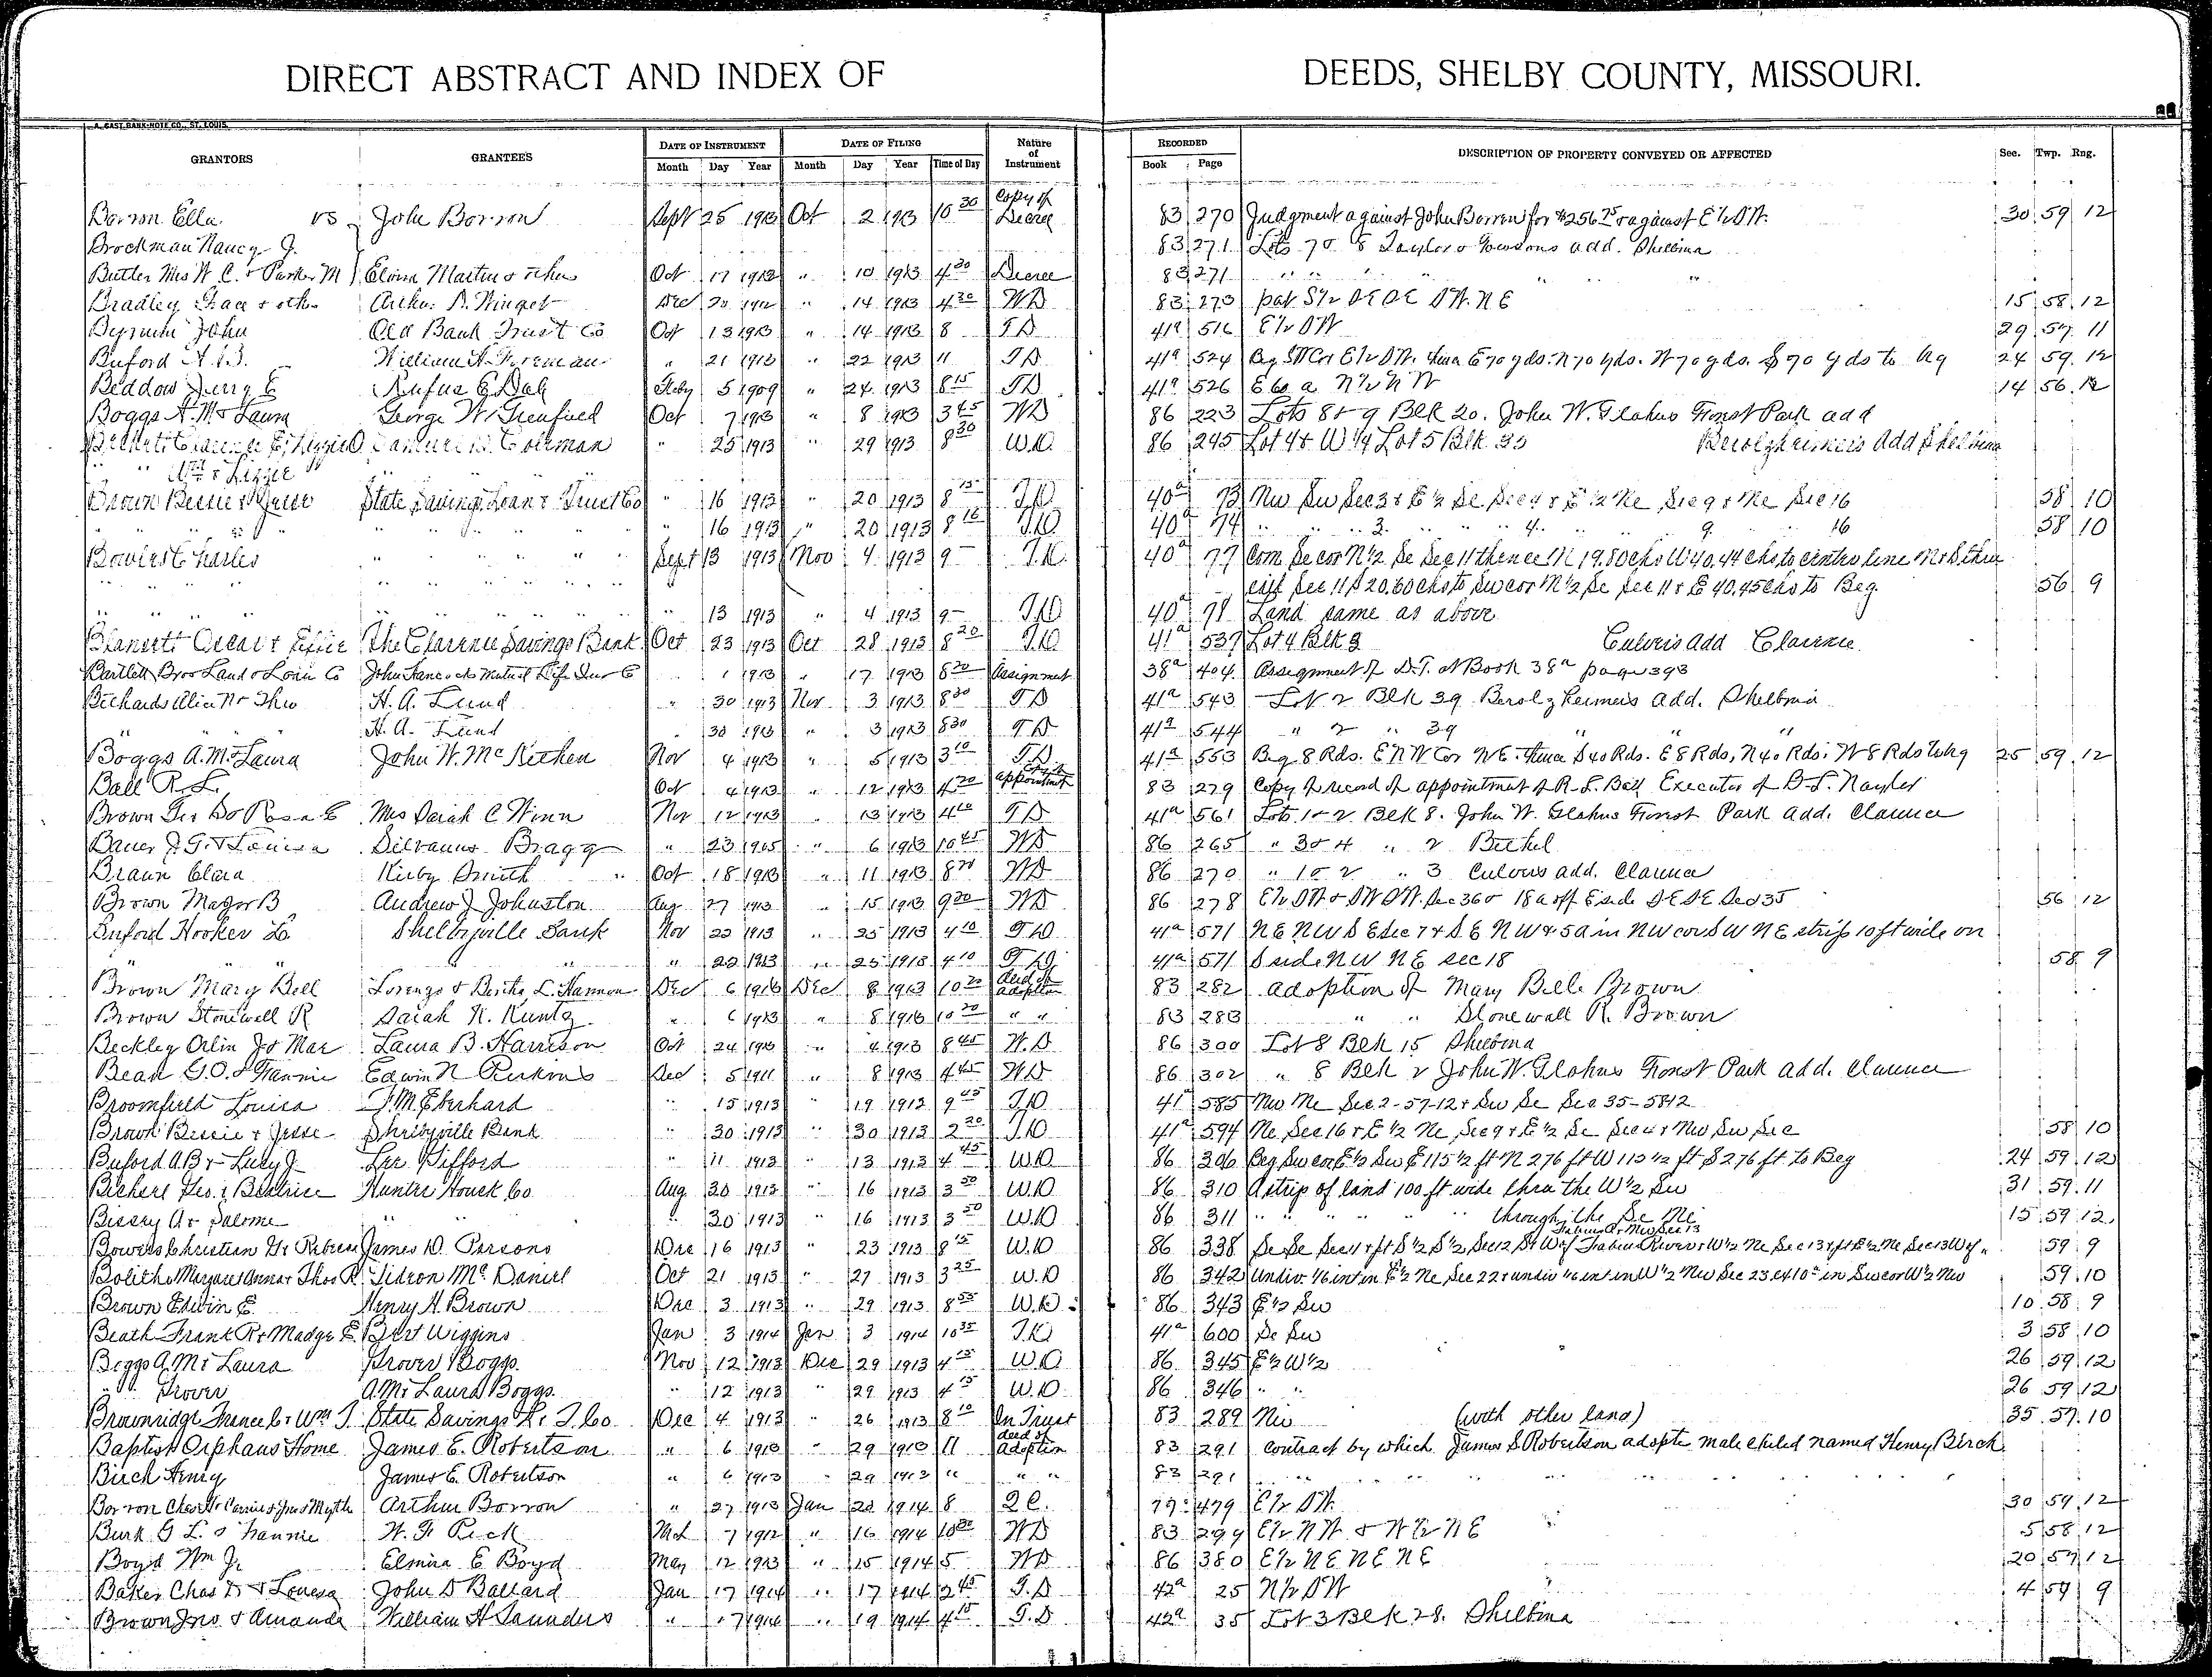 DIRECT ABSTRACT AND INDEX OF DEEDS, SHELBY COUNTY, MISSOURI.
GRANTORS GRANTEES DATE OF INSTRUMENT Month Day Year DATE OF FILING Month Day Year Time of Day Nature of Instrument RECORDED Book Page DESCRIPTION OF PROPERTY CONVEYED OR AFFECTED Sec. Twp. Rng.
Borron Ella vs John Borron Sept 25 1913 Oct 2 1913 10 30 Copy of Decree 83 270 Judgment against John Borron for $256 75 against E½ SW. 30 59 12
Brockman Nancy J. 83 271 Lots 7 & 8 Taylor & add. Shelbina
Butler Mrs W. C. & Parker M Eloira Martin & others Oct 17 1912 " 10 1913 4 30 Decree 83 271 " " " "
Bradley Grace & othrs Arthur B. Winget Dec 20 1912 " 14 1913 4 30 WD 83 273 pat S½ SE SE SW. NE 15 58 12
John Old Bank Trust Co Oct 13 1913 " 14 1913 8 TD 41a 516 E½ SW 29 57 11
Buford A. B. William H. Foreman " 21 1913 " 22 1913 11 TD 41a 524 Beg SW Cor E½ SW. thence E 70 yds. N 70 yds. W 70 yds. S 70 yds to beg 24 59 12
Beddow Jerry E Rufus E Dale Feby 5 1909 " 24 1913 8 15 TD 41a 526 E 60 a N½ NW 14 56 12
Boggs A. M & Laura George W. Greenfield Oct 7 1913 " 8 1913 3 45 WD 86 223 Lots 8 & 9 Blk 20. John W. Glahns Forest Park add
Coleman " 25 1913 " 29 1913 8 30 W.D. 86 245 Lot 4 & W ¼ Lot 5 Blk 35 Berolzheimers Add Shelbina
" " Wm & Lizzie "
Brown Bessie & Jesse State Savings Loan & Trust Co " 16 1913 " 20 1913 8 15 T.D 40a 73 Nw Sw Sec 3 & E½ Se Sec 4 & E½ Ne Sec 9 & Ne Sec 16 58 10
" " " " 16 1913 " 20 1913 8 15 T.D. 40a 74 " " 3 " " 4 " 9 " 16 58 10
Bowers Charles " " " " Sept 13 1913 Nov 4 1913 9 T.D. 40a 77 Com Se cor N½ Se Sec 11 thence N 19.80 chs W 40.44 chs to centre line N & S thru
" " " " " " said Sec 11 S 20.60 chs to Sw cor N½ Se Sec 11 & E 40.45 chs to Beg. 56 9
" " " " " " " 13 1913 " 4 1913 9 T.D 40a 78 Land same as above
Blansett Oscar & Effie The Clarence Savings Bank Oct 23 1913 Oct 28 1913 8 20 T.D 41a 537 Lot 4 Blk 3 Culvers Add Clarence
Bartlett Bros Land & Loan Co John Hancock Mutual Life Insr Co 1 1913 " 17 1913 8 20 Assignment 38a 404 Assignment of D.T. at Book 38a page 393
Bichards Alice N & Theo H. A. Lund " 30 1913 Nov 3 1913 8 30 TD 41a 543 Lot 2 Blk 39 Berolzheimers add. Shelbina
" H. A. Lund 30 1913 " 3 1913 8 30 TD 41a 544 " 2 " 39 " " "
Boggs A. M. & Laura John W. McKethen Nov 4 1913 " 5 1913 3 10 TD 41a 553 Beg 8 Rds. E NW Cor NE. thence S 40 Rds. E 8 Rds, N 40 Rds. W 8 Rds to beg 25 59 12
Ball R. L. Oct 4 1913 " 12 1913 4 20 Copy of appointment 83 279 Copy of record of appointment of R. L. Ball Executor of B. L. Naylor
Brown Geo D & Rosa E Mrs Sarah C Winn Nov 12 1913 " 13 1913 4 TD 41a 561 Lots 1 & 2 Blk 8. John W. Glahns Forest Park add. Clarence
Bauer J. G. & Louisa Silvanus Bragg " 23 1905 " 6 1913 10 45 WD 86 265 " 3 & 4 " 2 Bethel
Braun Clara Kirby Smith Oct 18 1913 " 11 1913 8 20 WD 86 270 " 1 & 2 " 3 Culvers add. Clarence
Brown Major B Andrew J Johnston Aug 27 1913 " 15 1913 9 20 WD 86 278 E½ SW & SW SW. Sec 36 & 18 a off E side SE SE Sec 35 56 12
Buford Hooker L. Shelbyville Bank Nov 22 1913 " 25 1913 4 10 T.D 41a 571 NE NW SE Sec 7 & SE NW & 5a in NW cor SW NE strip 10 ft wide on
" " " " 22 1913 " 25 1913 4 10 T.D 41a 571 S side NW NE sec 18 58 9
Brown Mary Bell Lorenzo & Bertha L. Hannon Dec 6 1913 Dec 8 1913 10 20 deed of adoption 83 282 adoption of Mary Belle Brown
Brown Stonewall R Sarah K. Kuntz " 6 1913 " 8 1913 10 20 " " 83 283 " " Stonewall R. Brown
Beckley Orlin J & Mae Laura B. Harrison Oct 24 1913 " 4 1913 8 45 W.D 86 300 Lot 8 Blk 15 Shelbina
Bean G. O. & Nannie Edwin N Perkins Dec 5 1911 " 8 1913 4 45 WD 86 302 " 8 Blk 2 John W. Glahns Forest Park add. Clarence
Broomfield Louisa J. M. Eberhard " 15 1913 " 19 1913 9 45 T.D 41a 585 Nw Ne Sec. 2-57-12 & Sw Se Sec 35-58 12
Brown Bessie & Jesse Shelbyville Bank " 30 1913 " 30 1913 2 20 T.D 41a 594 Ne Sec 16 & E½ Ne Sec 9 & E½ Se Sec 4 & Nw Sw Sec 58 10
Buford A B & Lucy J. Lee Gifford " 11 1913 " 13 1913 4 45 W.D 86 306 Beg Sw cor E½ Sw E 115½ ft N 276 ft W 115½ ft S 276 ft to Beg 24 59 12
Bichert Geo. & Beatrice Hunter Houck Co. Aug 30 1913 " 16 1913 3 50 W.D 86 310 A strip of land 100 ft wide thru the W½ Sw 31 59 11
A & Salome " " " 30 1913 " 16 1913 3 50 W.D 86 311 " " " " " through the Se Ne 15 59 12
Bowers Christian H & Rebecca James D. Parsons Dec 16 1913 " 23 1913 8 15 W.D 86 338 Se Se Sec 11 & pt S½ S½ Sec 12 59 9
Bolitho Margaret Anna & Thos R. Gideon McDaniel Oct 21 1913 " 27 1913 3 25 W.D 86 342 Undiv 1/6 int in E½ Ne Sec 22 & undiv 1/6 int in W½ Nw Sec 23 ex 10a in Sw cor W½ Nw 59 10
Brown Edwin E. Henry H. Brown Dec 3 1913 " 29 1913 8 55 W.D. 86 343 E½ Sw 10 58 9
Beath Frank R & Madge E. Bert Wiggins Jan 3 1914 Jan 3 1914 10 35 T.D 41a 600 Se Sw 3 58 10
Boggs A. M & Laura Grover Boggs Nov 12 1913 Dec 29 1913 4 15 W.D 86 345 E½ W½ 26 59 12
" Grover A. M & Laura Boggs " 12 1913 " 29 1913 4 15 W.D. 86 346 " " 26 59 12
Brownridge France C. & Wm T. State Savings L. & T. Co Dec 4 1913 " 26 1913 8 10 In Trust 83 289 Nw (with other land) 35 57 10
Baptist Orphans Home James E. Robertson " 6 1913 " 29 1913 11 deed of adoption 83 291 contract by which James E Robertson adopts male child named Henry Birch
Birch Henry James E. Robertson " 6 1913 " 29 1913 " " " 83 291 " " " " "
Borron Chas H & Carrie & Jno & Myrtle Arthur Borron " 27 1913 Jan 22 1914 8 Q C. 79 479 E½ SW. 30 59 12
Burk G L. & Nannie W. F. Peck Mch 7 1912 " 16 1914 10 30 WD 83 299 E½ NW & W½ NE 5 58 12
Boyd Wm J. Elmira E Boyd May 12 1913 " 15 1914 5 WD 86 380 E½ NE NE NE 20 57 12
Baker Chas D & Louesa John D Ballard Jan 17 1914 " 17 1914 2 45 T.D 42a 25 N½ SW 4 59 9
Brown Jno & Amanda William H Saunders " 17 1914 " 19 1914 4 15 T.D 42a 35 Lot 3 Blk 28. Shelbina